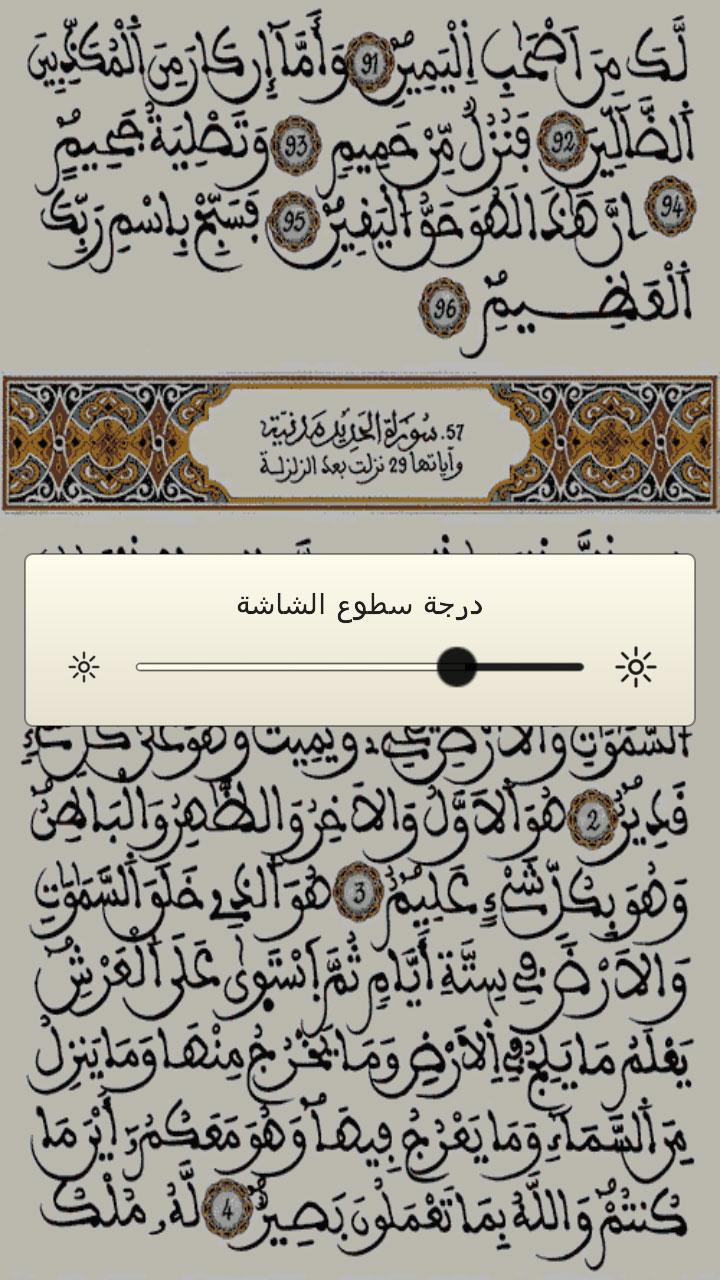 لَّكَ مِنَ اَصْحَٰبِ اِ۬لْيَمِينِۖ 91 وَأَمَّآ إِن كَانَ مِنَ اَ۬لْمُكَذِّبِينَ
اَ۬لضَّآلِّينَ 92 فَنُزُلٞ مِّنْ حَمِيمٖ 93 وَتَصْلِيَةُ جَحِيمٍۖ
94 اِنَّ هَٰذَا لَهُوَ حَقُّ اُ۬لْيَقِينِۖ 95 فَسَبِّحْ بِاسْمِ رَبِّكَ
اَ۬لْعَظِيمِۖ 96
57. سُورَةُ الحَدِيد مَدَنيّة
وآياتها 29 نزلت بعد الزلزلة
درجة سطوع الشاشة
اُ۬لسَّمَٰوَٰتِ وَالَارْضِ يُحْيِۦ وَيُمِيتُ وَهُوَ عَلَىٰ كُلِّ شَےْءٖ
قَدِيرٌۖ 2 هُوَ اَ۬لَاوَّلُ وَالَاخِرُ وَالظَّٰهِرُ وَالْبَاطِنُۖ
وَهُوَ بِكُلِّ شَےْءٍ عَلِيمٌۖ 3 هُوَ اَ۬لذِے خَلَقَ اَ۬لسَّمَٰوَٰتِ
وَالَارْضَ فِے سِتَّةِ أَيَّامٖ ثُمَّ اَ۪سْتَوَىٰ عَلَى اَ۬لْعَرْشِۖ
يَعْلَمُ مَا يَلِجُ فِے اِ۬لَارْضِ وَمَا يَخْرُجُ مِنْهَا وَمَا يَنزِلُ
مِنَ اَ۬لسَّمَآءِ وَمَا يَعْرُجُ فِيهَاۖ وَهُوَ مَعَكُمُۥٓ أَيْنَ مَا
كُنتُمْۖ وَاللَّهُ بِمَا تَعْمَلُونَ بَصِيرٞۖ 4 لَّهُۥ مُلْكُ